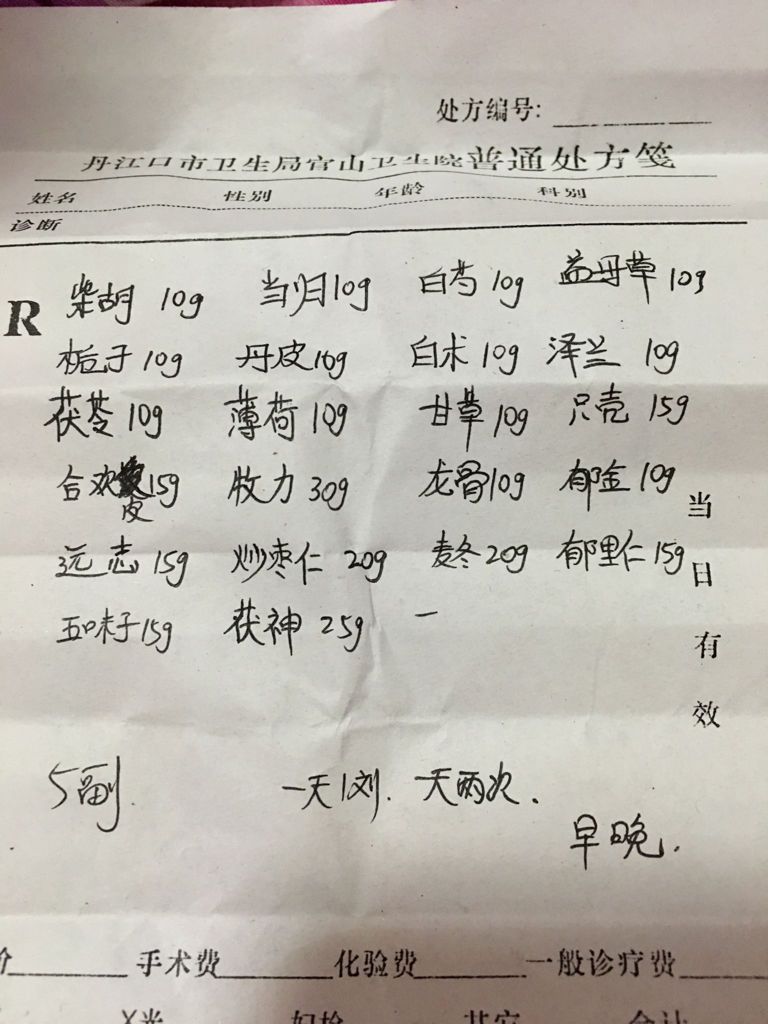 处方编号:
丹江口市卫生局官山卫生院普通处方笺
姓名 性别 年龄 科别
诊断
R
柴胡 10g 当归10g 白芍 10g 益母草 10g
栀子 10g 丹皮10g 白术 10g 泽兰 10g
茯苓 10g 薄荷 10g 甘草 10g 只壳 15g
合欢皮15g 牧力 30g 龙骨10g 郁金 10g
远志 15g 炒枣仁 20g 麦冬 20g 郁里仁 15g
五味子 15g 茯神 25g 一
当日有效
5副. 一天1刘. 一天两次.
早晚.
价 手术费 化验费 一般诊疗费
X光 妇检 其它 合计